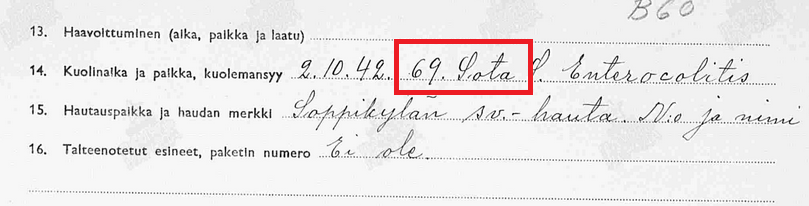 B60
13. Haavoittuminen (aika, paikka ja laatu)
14. Kuolinaika ja paikka, kuolemansyy 2.10.42. 69. Sota S. Enterocolitis
15. Hautauspaikka ja haudan merkki Soppikylän sv.-hauta. N:o ja nimi
16. Talteenotetut esineet, paketin numero Ei ole.